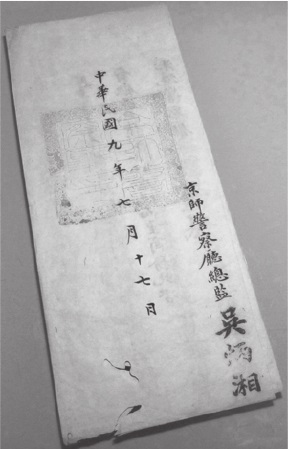 京師警察廳總監吳炳湘
中華民國九年七月十七日